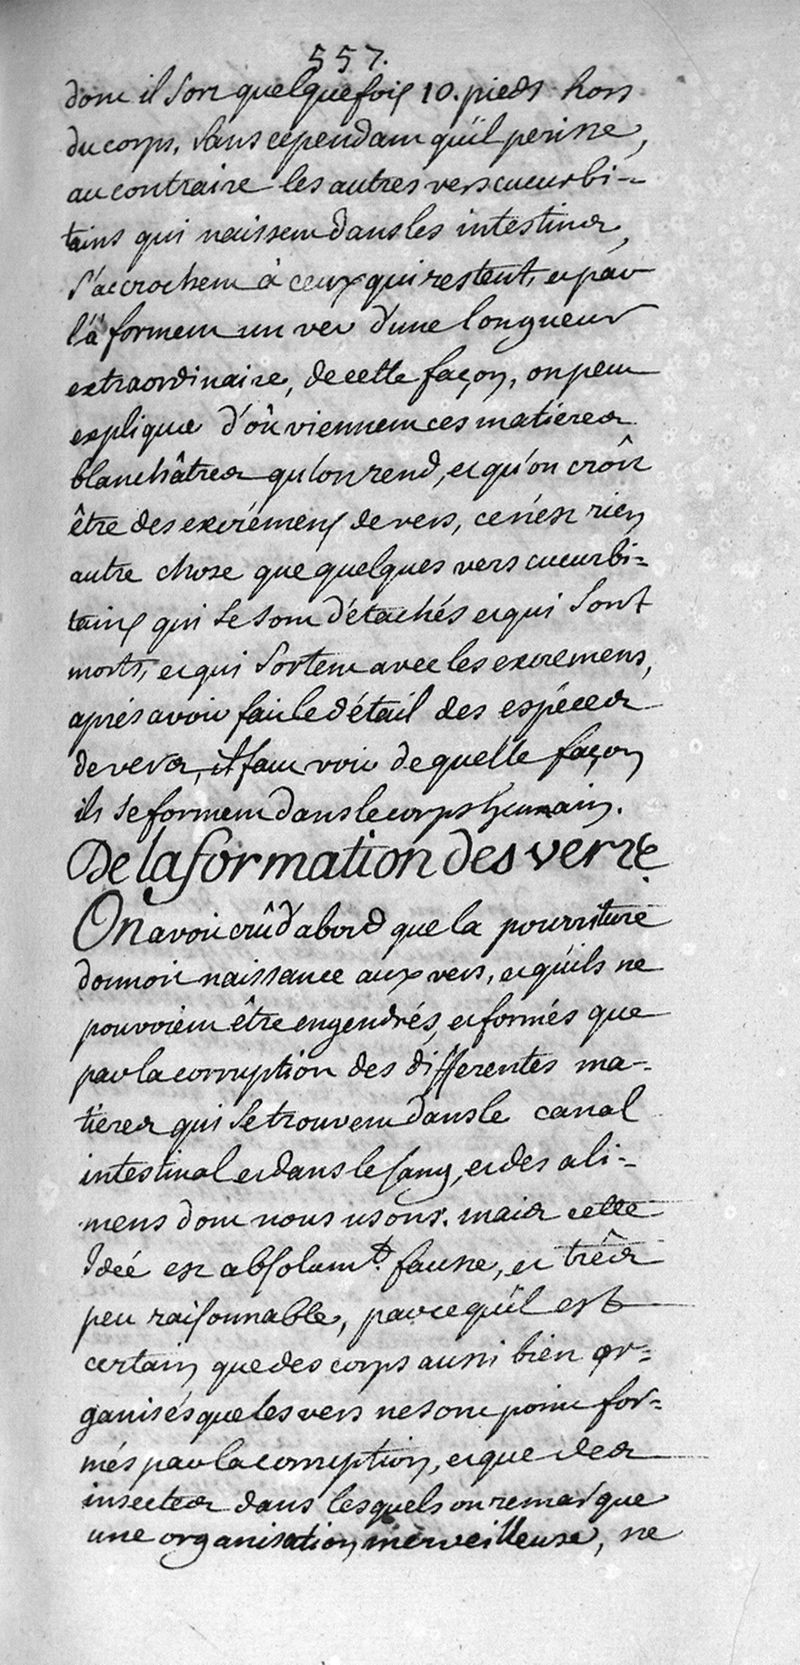 557.
dont il sort quelquefois 10. pieds hors
du corps. sans cependant qu'il perisse,
au contraire les autres vers cucurbi-
tains qui naissent dans les intestins,
s'accrochent à ceux qui restent, et par
là forment un ver d'une longueur
extraordinaire, de cette façon, on peut
expliquer d'où viennent ces matieres
blanchâtres qu'on rend, et qu'on croît
être des excrémens de vers, ce n'est rien
autre chose que quelques vers cucurbi=
tains qui se sont détachés et qui sont
morts, et qui sortent avec les excremens,
aprés avoir fait le détail des espéces
de vers, il faut voir de quelle façon
ils se forment dans le corps humain.
De la formation des vers
On avoit crû d'abord que la pourriture
donnoit naissance aux vers, et qu'ils ne
pouvoient être engendrés, et formés que
par la corruption des differentes ma-
tieres qui se trouvent dans le canal
intestinal et dans le sang, et des ali-
mens dont nous usons. mais cette
Idée est absolumt. fausse, et très
peu raisonnable, parce qu'il est
certain que des corps aussi bien or=
ganisés que les vers ne sont point for-
més par la corruption, et que des
insectes dans lesquels on remarque
une organisation merveilleuse, ne